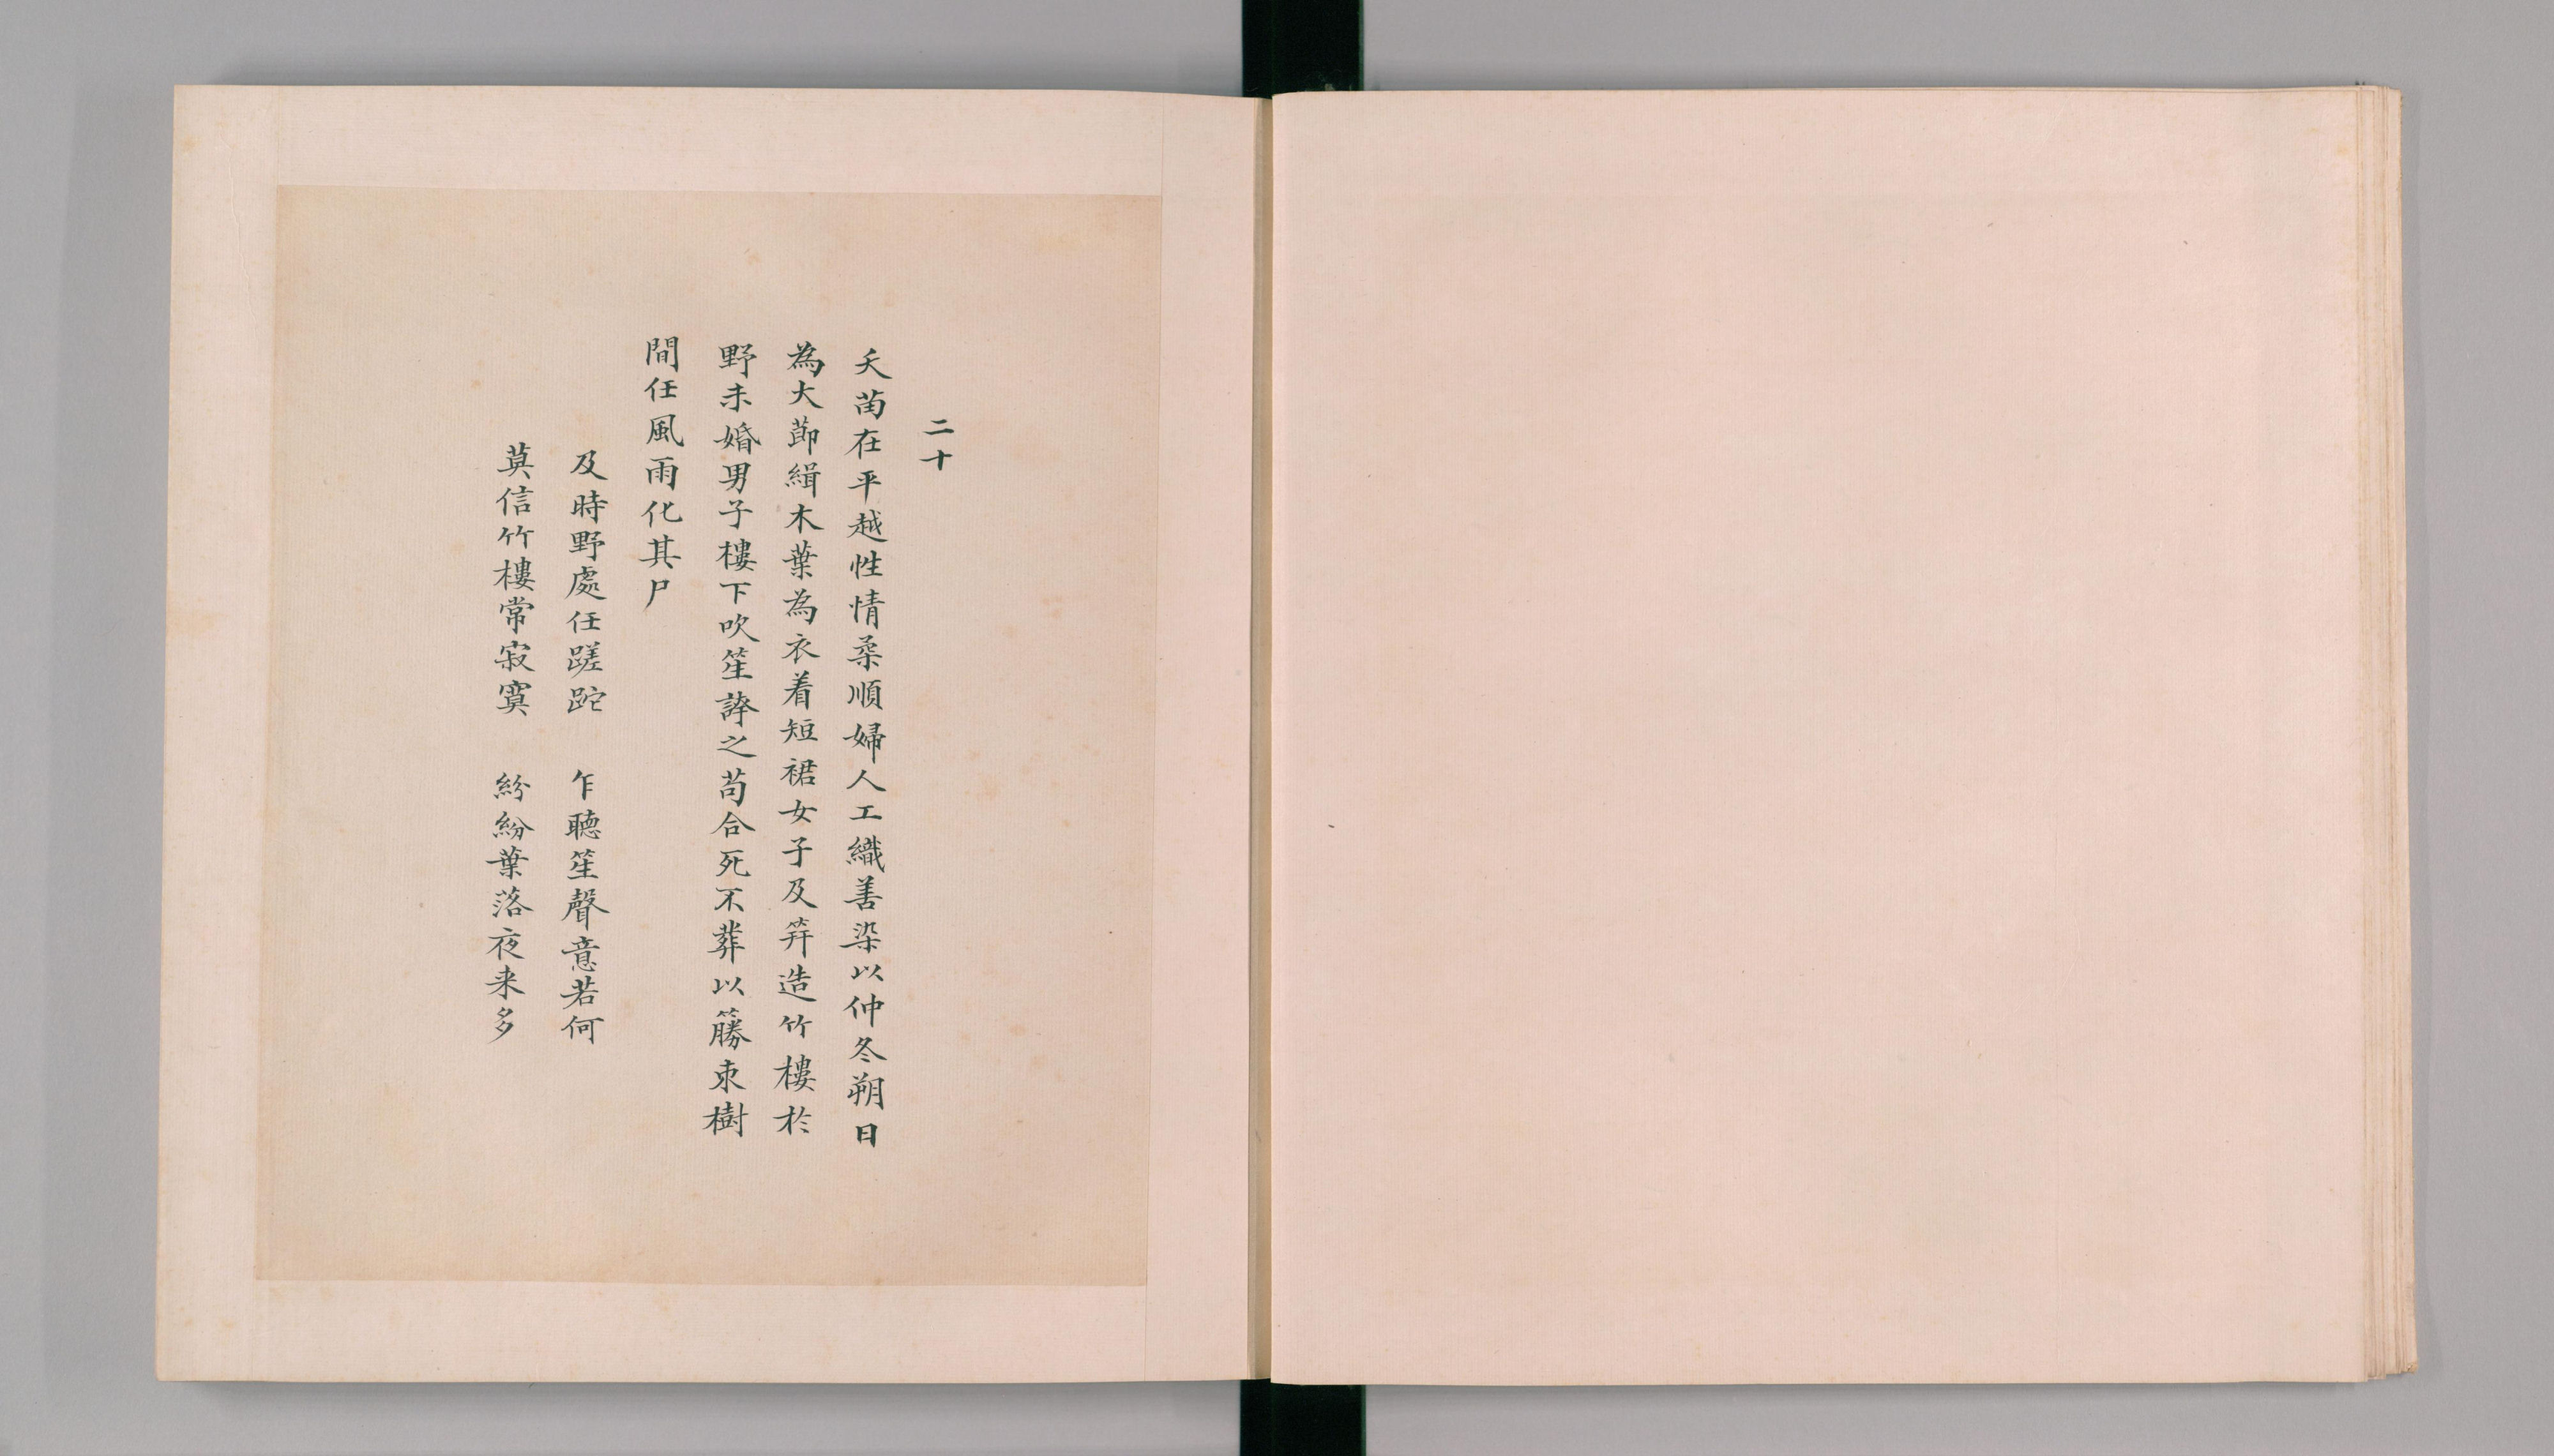 二十
夭苗在平越性情柔順婦人工織善染以仲冬朔日
為大節緝木葉為衣着短裙女子及笄造竹樓於
野未婚男子樓下吹笙誘之苟合死不葬以籐束樹
間任風雨化其尸
及時野處任蹉跎 乍聽笙聲意若何
莫信竹樓常寂寞 紛紛葉落夜来多